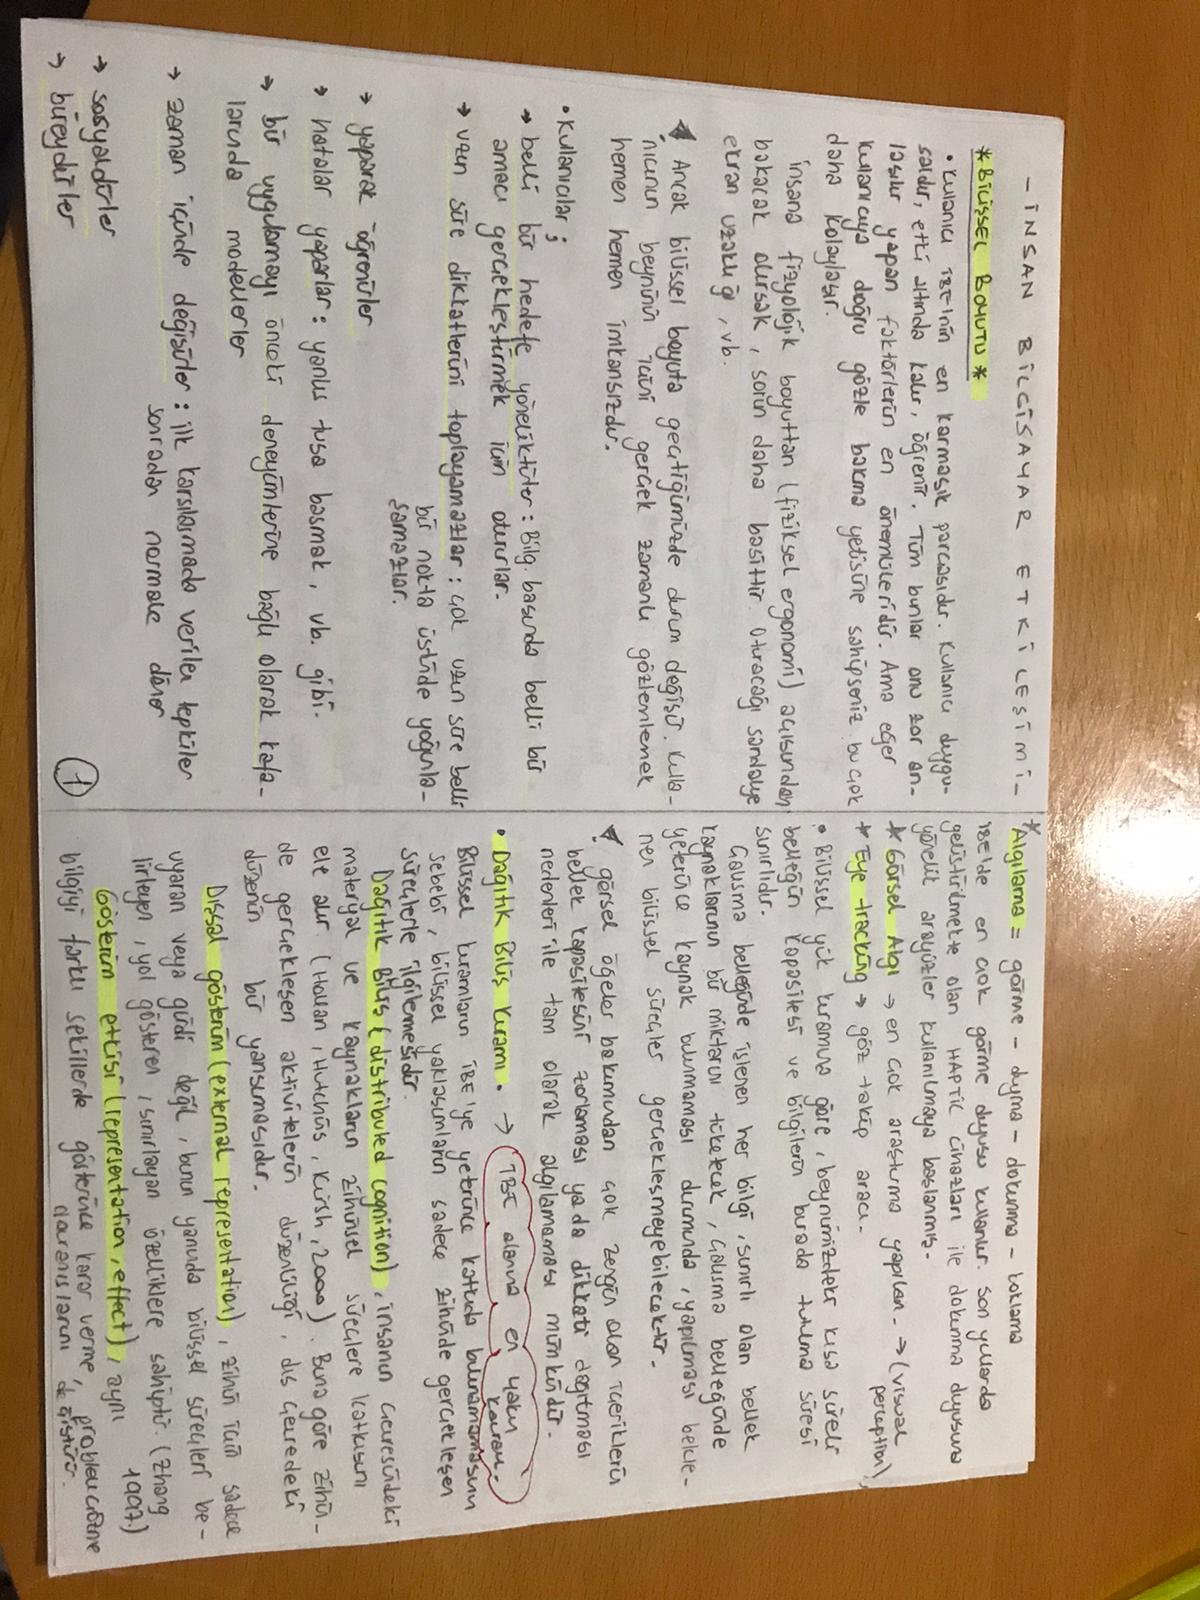 - İNSAN BİLGİSAYAR ETKİLEŞİMİ -
* BİLİŞSEL BOYUTU *
• Kullanıcı İBE'nin en karmaşık parçasıdır. Kullanıcı duygu-
saldır, etki altında kalır, öğrenir. Tüm bunlar onu zor an-
laşılır yapan faktörlerin en önemlileridir. Ama eğer
kullanıcıya doğru gözle bakma yetisine sahipseniz bu çok
daha kolaylaşır.
İnsana fizyolojik boyuttan (fiziksel ergonomi) açısından
bakacak olursak, sorun daha basittir. Oturacağı sandalye
ekran uzaklığı, vb.
Ancak bilişsel boyuta geçtiğimizde durum değişir. Kulla-
nıcının beyninin içini gerçek zamanlı gözlemlemek
hemen hemen imkansızdır.
• Kullanıcılar ;
→ belli bir hedefe yöneliktirler : Bilg. başında belli bir
amacı gerçekleştirmek için otururlar.
→ uzun süre dikkatlerini toplayamazlar : çok uzun süre belli
bir nokta üstünde yoğunla-
şamazlar.
→ yaparak öğrenirler
→ hatalar yaparlar : yanlış tuşa basmak, vb. gibi.
→ bir uygulamayı önceki deneyimlerine bağlı olarak kafa-
larında modellerler
→ zaman içinde değişirler : ilk karşılaşmada verilen tepkiler
sonradan normale döner
→ sosyaldirler
→ bireydirler
1
* Algılama = görme - duyma - dokunma - koklama
İBE'de en çok görme duyusu kullanılır. Son yıllarda
geliştirilmekte olan HAPTİC cihazları ile dokunma duyusuna
yönelik arayüzler kullanılmaya başlanmış.
* Görsel Algı → en çok araştırma yapılan. → (visual
perception)
* Eye tracking → göz takip aracı.
• Bilişsel yük kuramına göre, beynimizdeki kısa süreli
belleğin kapasitesi ve bilgilerin burada tutulma süresi
sınırlıdır.
Çalışma belleğinde işlenen her bilgi, sınırlı olan bellek
kaynaklarının bir miktarını tüketecek, çalışma belleğinde
yeterince kaynak bulunmaması durumunda, yapılması bekle-
nen bilişsel süreçler gerçekleşmeyebilecektir.
görsel öğeler bakımından çok zengin olan içeriklerin
bellek kapasitesini zorlaması ya da dikkati dağıtması
nedenleri ile tam olarak algılamaması mümkündür.
• Dağıtık Biliş Kuramı. → İBE alanına en yakın
kavram.
Bilişsel kuramların İBE'ye yeterince katkıda bulunamamasının
sebebi, bilişsel yaklaşımların sadece zihinde gerçekleşen
süreçlerle ilgilemesidir.
Dağıtık Biliş (distributed cognition), insanın çevresindeki
materyal ve kaynakların zihinsel süreçlere katkısını
ele alır. (Hollan, Hutchins, Kirsh, 2000). Buna göre zihin-
de gerçekleşen aktivitelerin düzenliliği, dış çevredeki
düzenin bir yansımasıdır.
Dışsal gösterim (external representation), zihin için sadece
uyaran veya güdü değil, bunun yanında bilişsel süreçleri be-
lirleyen, yol gösteren, sınırlayan özelliklere sahiptir. (Zhang
1997.)
Gösterim etkisi (representation, effect), aynı
bilgiyi farklı şekillerde gösterince karar verme, problem çözme
davranışlarını değiştirir.